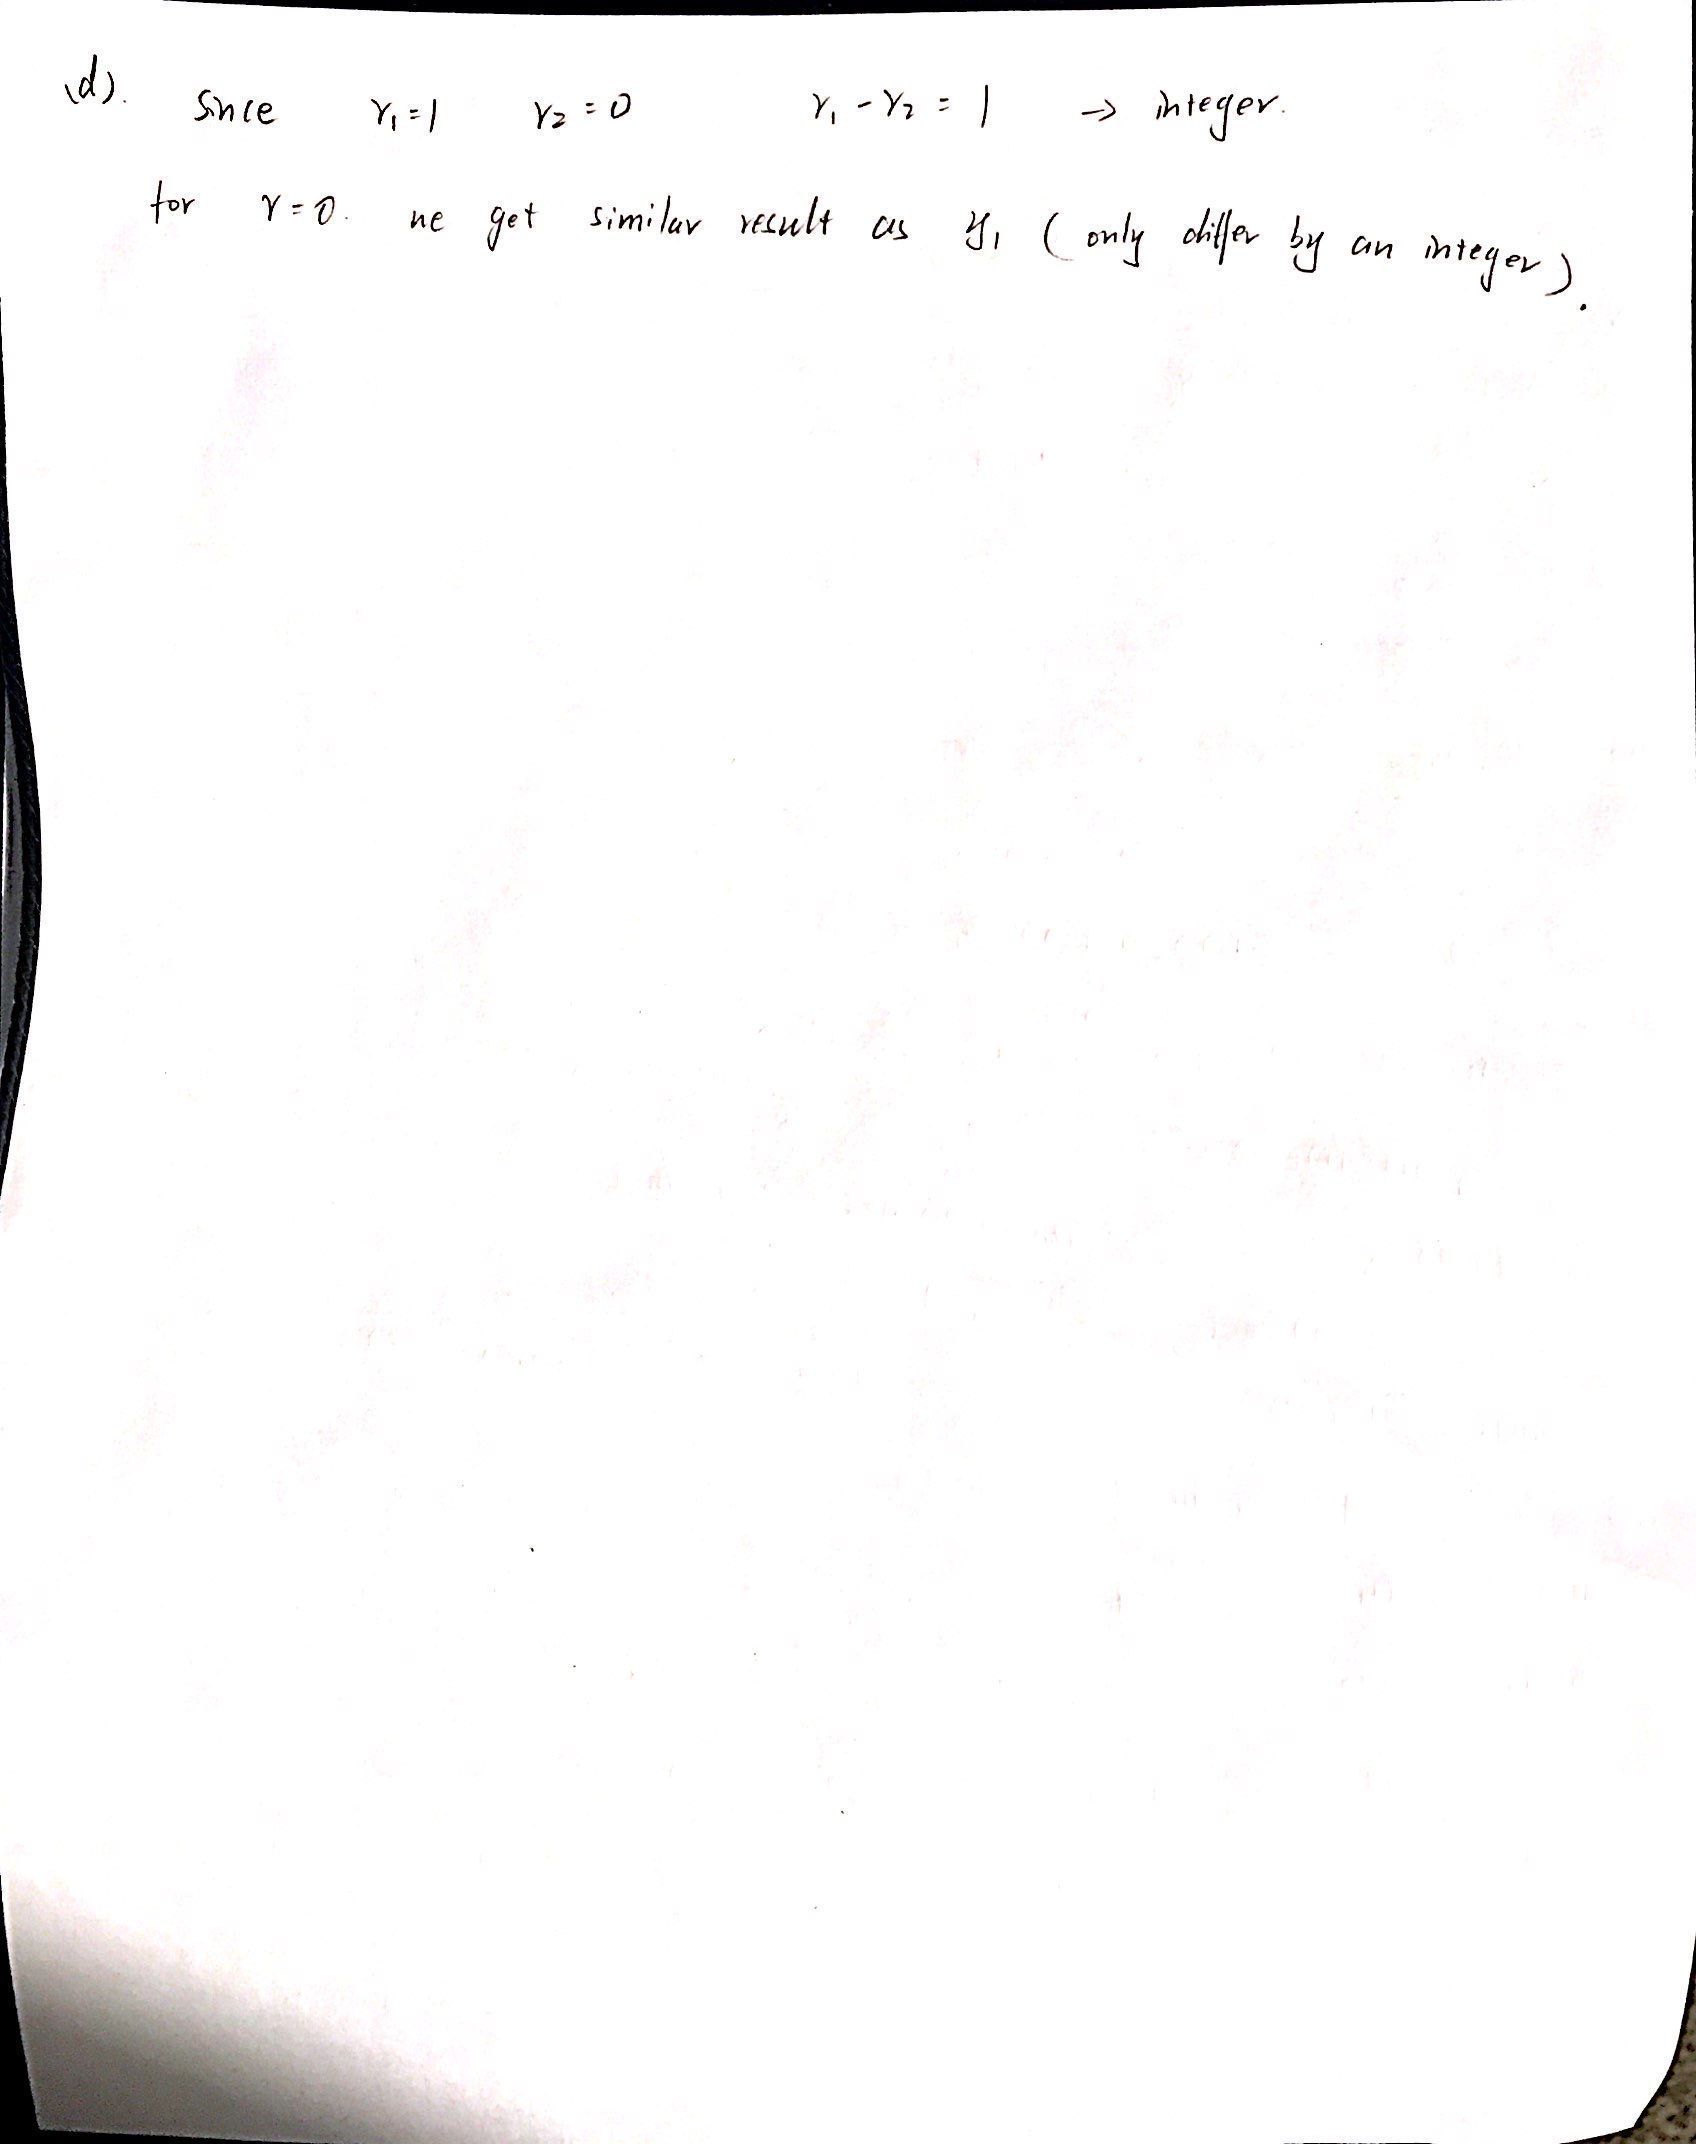 (d). Since r₁=1 r₂=0 r₁-r₂=1 → integer.
for r=0. we get similar result as y₁ (only differ by an integer).